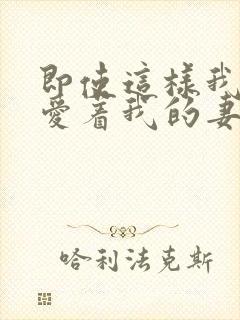 即使這樣我
愛著我的妻
哈利法克斯